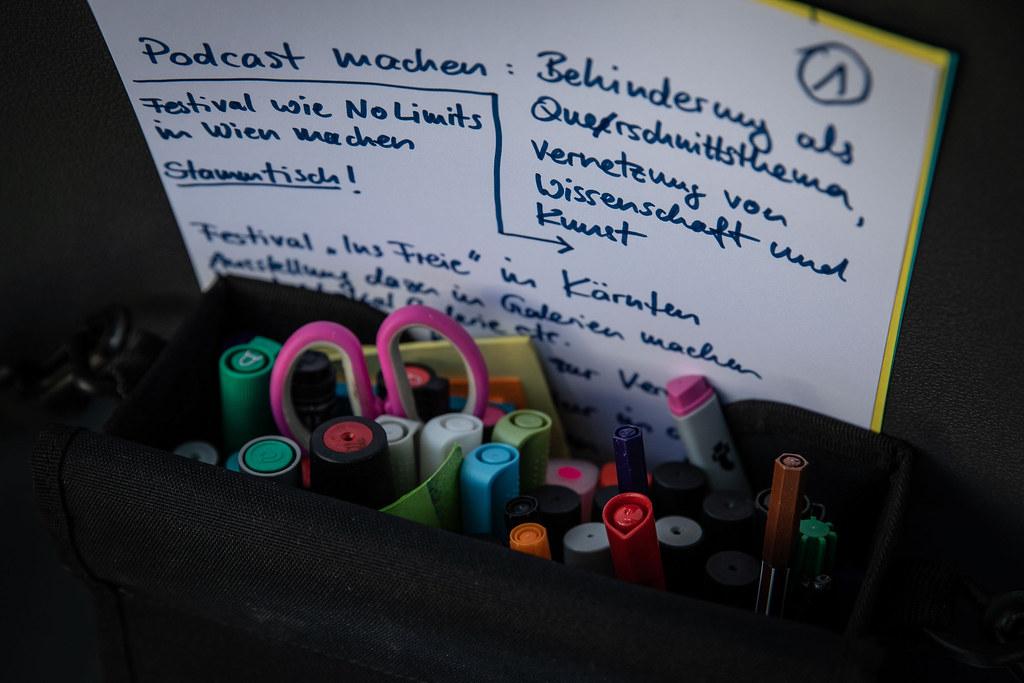 Podcast machen :
Festival wie NoLimits
in Wien machen
Stammtisch!
Behinderung als
Querschnittsthema,
Vernetzung von
Wissenschaft und
Kunst
1
Festival „Ins Freie" in Kärnten
Ausstellung dazu in Galerien machen
Galerie etc.
zur Ver
in